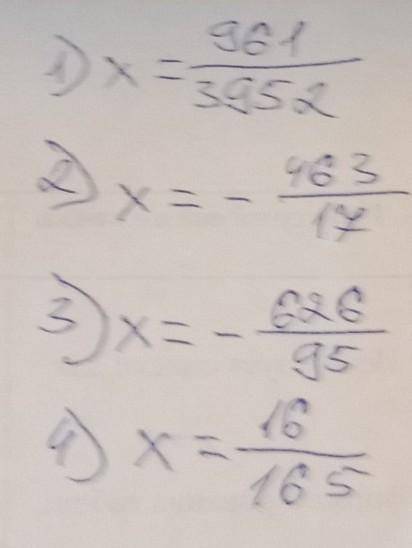 1) x = 961/3952
2) x = - 463/17
3) x = - 626/95
4) x = 16/165